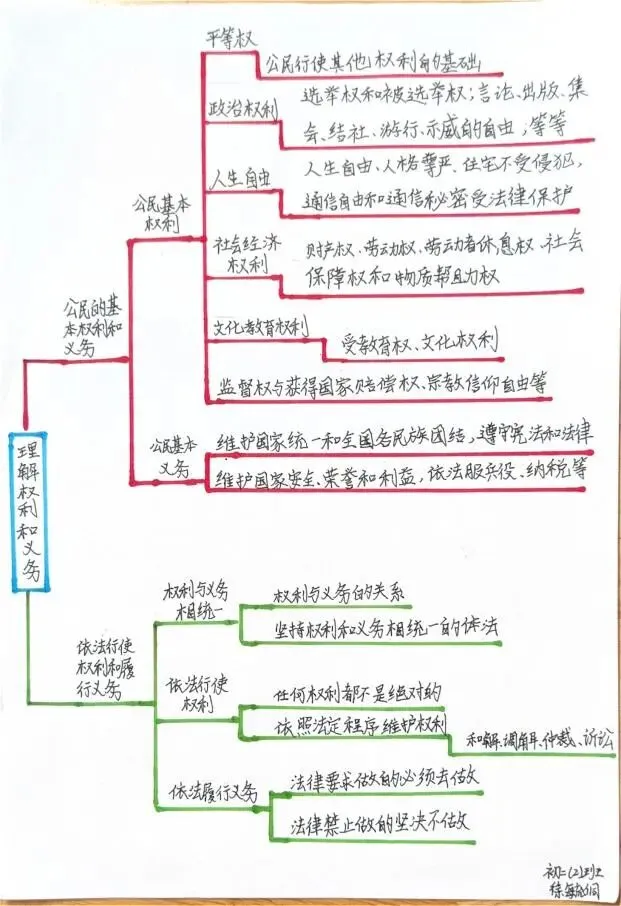 平等权
公民行使其他权利的基础
政治权利
选举权和被选举权；言论、出版、集
会、结社、游行、示威的自由，等等
人生自由
人生自由、人格尊严、住宅不受侵犯，
通信自由和通信秘密受法律保护
公民基本
权利
社会经济
权利
财产权、劳动权、劳动者休息权、社会
保障权和物质帮助权
公民的基
本权利和
义务
文化教育权利
受教育权、文化权利
监督权与获得国家赔偿权、宗教信仰自由等
公民基本
义务
维护国家统一和全国各民族团结，遵守宪法和法律
维护国家安全、荣誉和利益，依法服兵役、纳税等
理解权利和义务
权利与义务
相统一
权利与义务的关系
坚持权利和义务相统一的做法
依法行使
权利和履
行义务
依法行使
权利
任何权利都不是绝对的
依照法定程序维护权利
和解、调解、仲裁、诉讼
依法履行义务
法律要求做的必须去做
法律禁止做的坚决不做
初二(2)班